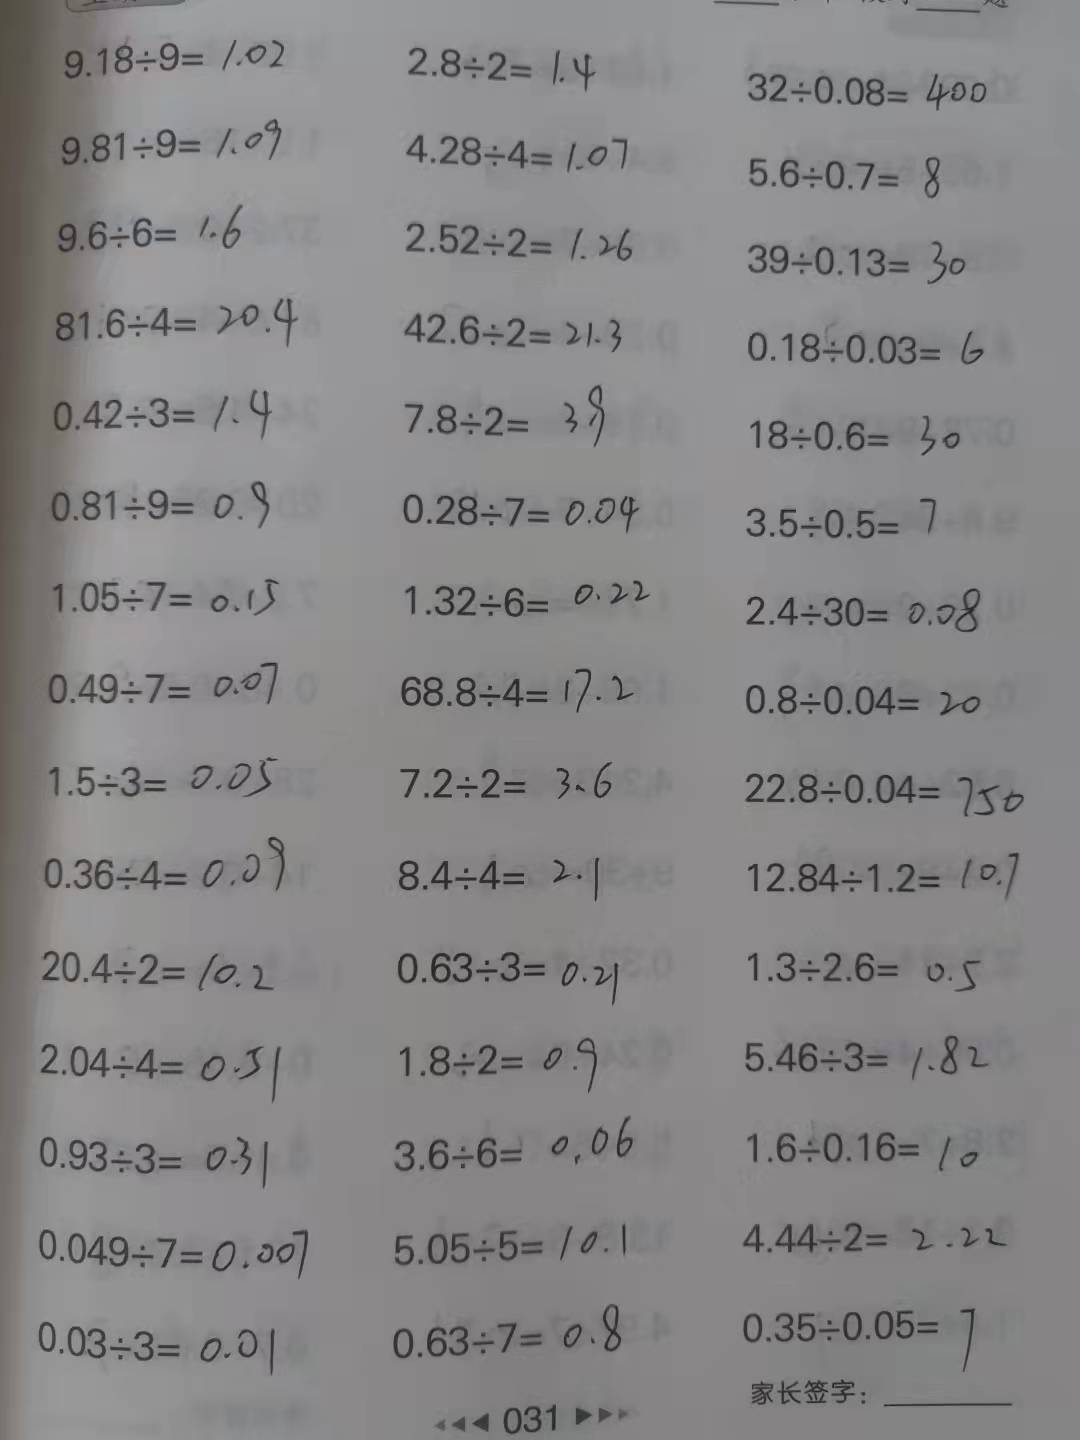 9.18÷9= 1.02
9.81÷9= 1.09
9.6÷6= 1.6
81.6÷4= 20.4
0.42÷3= 1.4
0.81÷9= 0.9
1.05÷7= 0.15
0.49÷7= 0.07
1.5÷3= 0.05
0.36÷4= 0.09
20.4÷2= 10.2
2.04÷4= 0.51
0.93÷3= 0.31
0.049÷7= 0.007
0.03÷3= 0.01
2.8÷2= 1.4
4.28÷4= 1.07
2.52÷2= 1.26
42.6÷2= 21.3
7.8÷2= 39
0.28÷7= 0.04
1.32÷6= 0.22
68.8÷4= 17.2
7.2÷2= 3.6
8.4÷4= 2.1
0.63÷3= 0.21
1.8÷2= 0.9
3.6÷6= 0.06
5.05÷5= 10.1
0.63÷7= 0.8
32÷0.08= 400
5.6÷0.7= 8
39÷0.13= 30
0.18÷0.03= 6
18÷0.6= 30
3.5÷0.5= 7
2.4÷30= 0.08
0.8÷0.04= 20
22.8÷0.04= 750
12.84÷1.2= 10.7
1.3÷2.6= 0.5
5.46÷3= 1.82
1.6÷0.16= 10
4.44÷2= 2.22
0.35÷0.05= 7
家长签字：
031